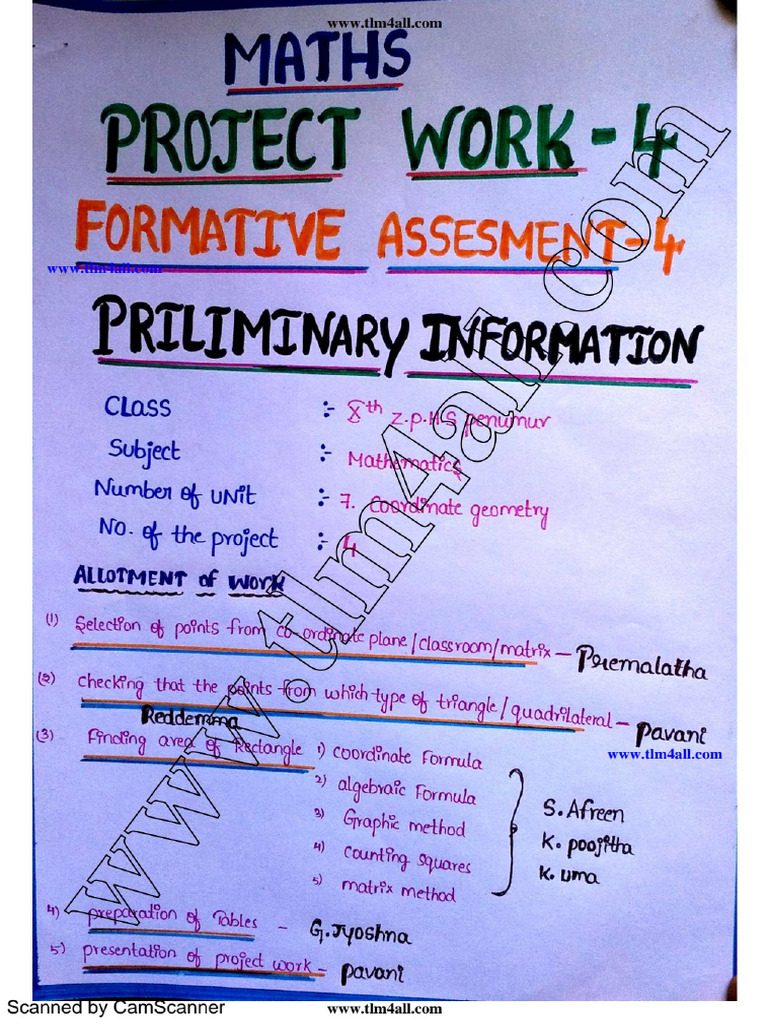 www.tlm4all.com
MATHS
PROJECT WORK-4
FORMATIVE ASSESMENT-4
www.tlm4all.com
PRILIMINARY INFORMATION
CLASS :- Xth Z.P.H.S penumur
Subject :- Mathematics
Number of UNIT :- 7. Coordinate geometry
NO. of the project :- 4
ALLOTMENT of WORK
(1) Selection of points from co-ordinate plane/classroom/matrix - Premalatha
(2) checking that the points from which type of triangle/quadrilateral - pavani
Reddemma
www.tlm4all.com
(3) Finding area of Rectangle 1) coordinate Formula
2) algebraic Formula
3) Graphic method
4) counting squares
5) matrix method
S. Afreen
K. poojitha
K. uma
4) preparation of Tables - G. Jyoshna
5) presentation of project work - pavani
www.tlm4all.com
Scanned by CamScanner
www.tlm4all.com